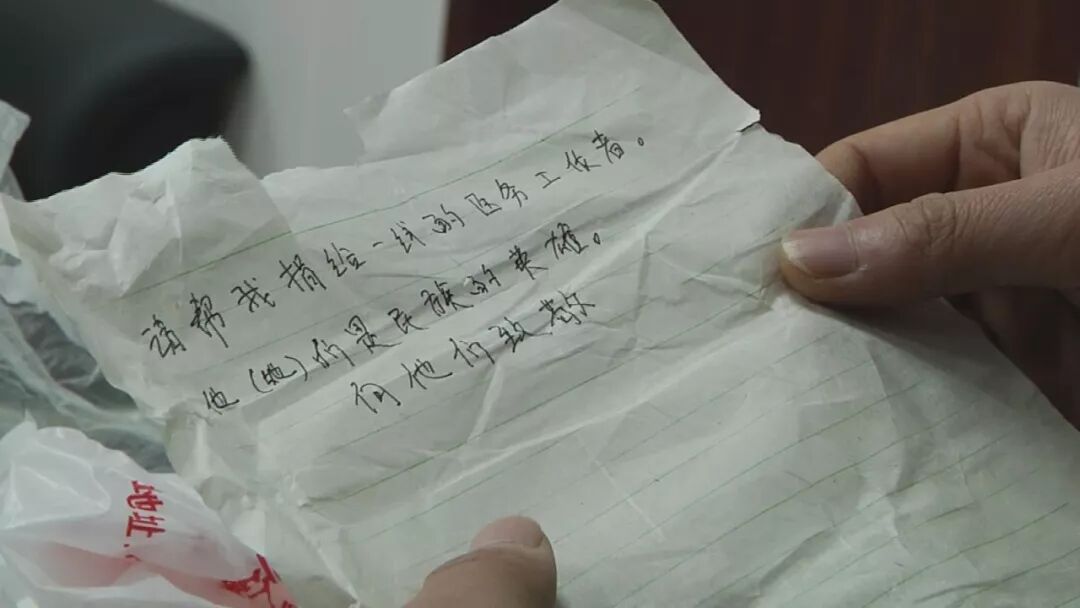 请帮我捐给一线的医务工作者。
他(她)们是民族的英雄。
向他们致敬
地址: